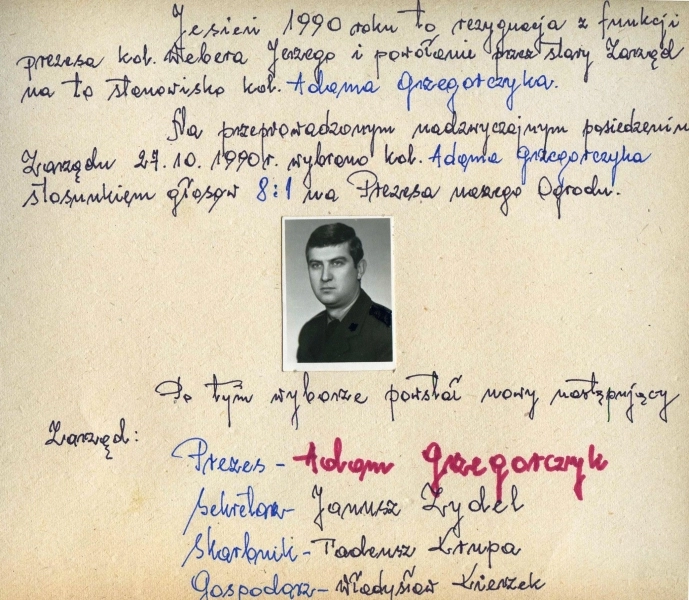 Jesień 1990 roku to rezygnacja z funkcji
prezesa kol. Webera Jerzego i powołanie przez stary Zarząd
na to stanowisko kol. Adama Grzegorczyka.
Na przeprowadzonym nadzwyczajnym posiedzeniu
Zarządu 27.10.1990 r. wybrano kol. Adama Grzegorczyka
stosunkiem głosów 8:1 na Prezesa naszego Ogrodu.
Po tym wyborze powstał nowy następujący
Zarząd:
Prezes - Adam Grzegorczyk
Sekretarz - Janusz Zydel
Skarbnik - Tadeusz Krupa
Gospodarz - Władysław Kierzek